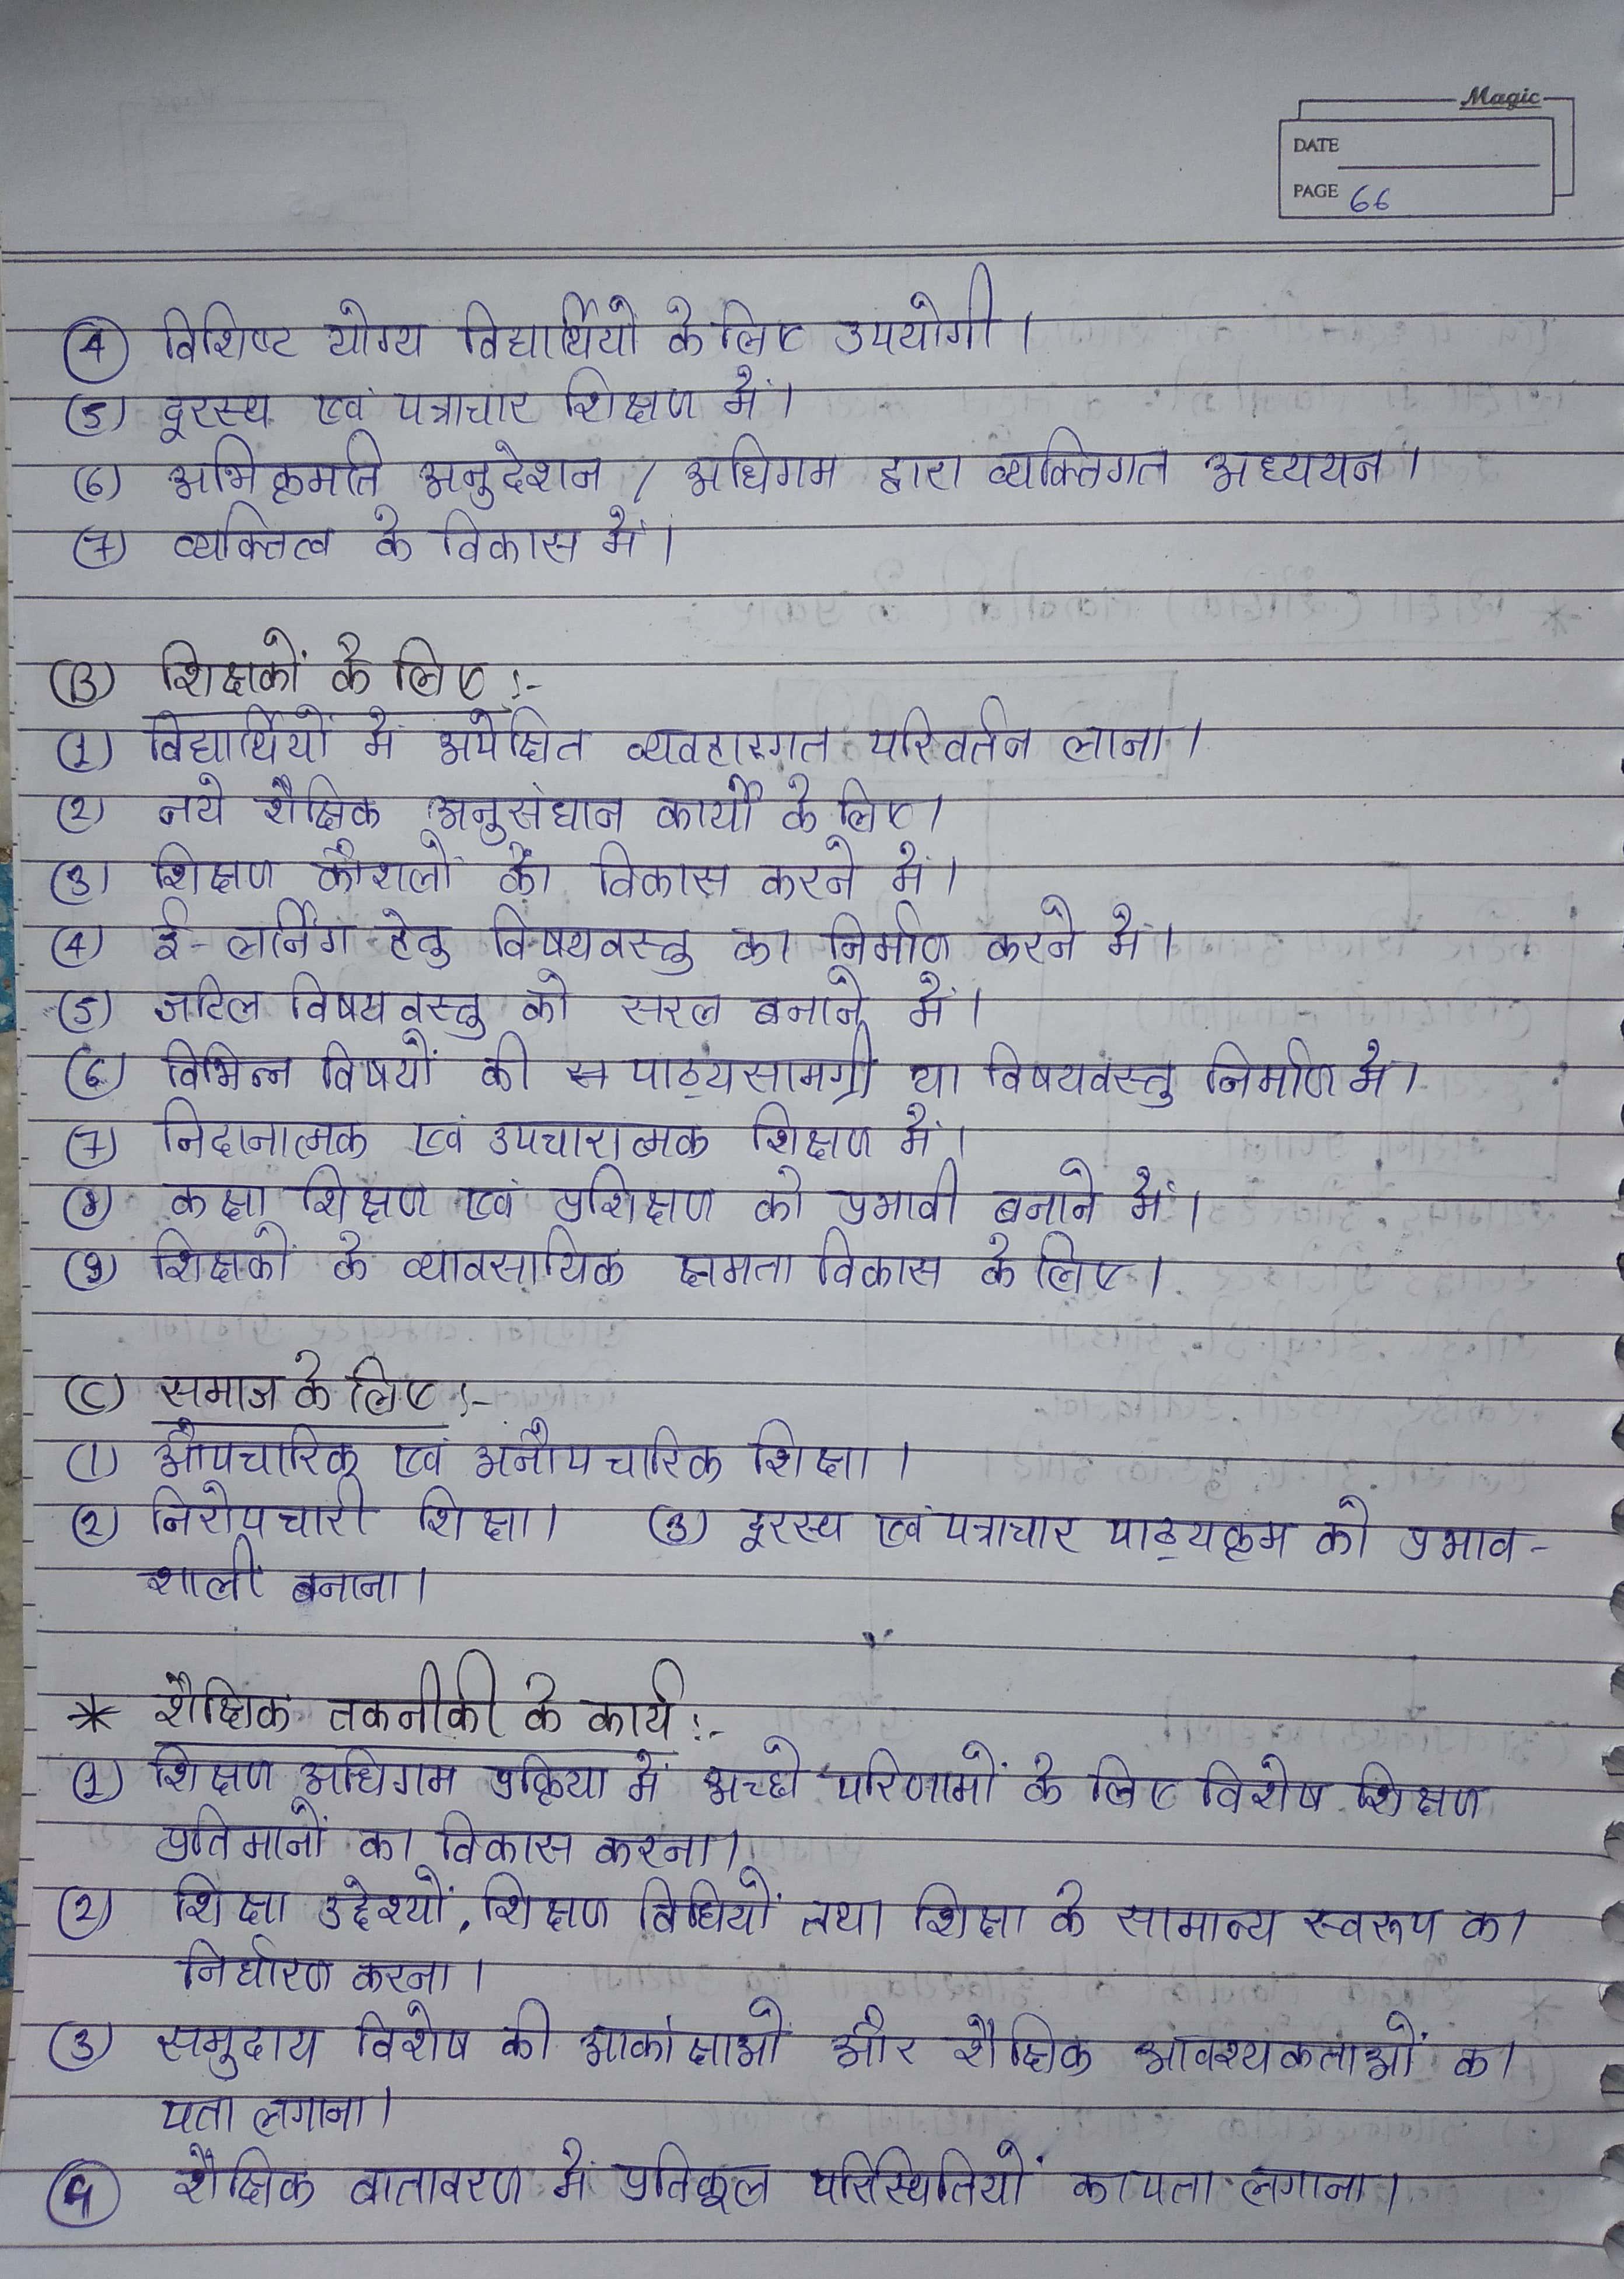 Magic
DATE
PAGE 66
(4) विशिष्ट योग्य विद्यार्थियो के लिए उपयोगी।
(5) दूरस्थ एवं पत्राचार शिक्षण में।
(6) अभिक्रमति अनुदेशन / अधिगम द्वारा व्यक्तिगत अध्ययन।
(7) व्यक्तित्व के विकास में।
(B) शिक्षकों के लिए :-
(1) विद्यार्थियों में अपेक्षित व्यवहारगत परिवर्तन लाना।
(2) नये शैक्षिक अनुसंधान कार्यों के लिए।
(3) शिक्षण कौशलों का विकास करने में।
(4) ई-लर्निंग हेतु विषयवस्तु का निर्माण करने में।
(5) जटिल विषयवस्तु को सरल बनाने में।
(6) विभिन्न विषयों की स पाठ्यसामग्री या विषयवस्तु निर्माण में।
(7) निदानात्मक एवं उपचारात्मक शिक्षण में।
(8) कक्षा शिक्षण एवं प्रशिक्षण को प्रभावी बनाने में।
(9) शिक्षकों के व्यावसायिक क्षमता विकास के लिए।
(C) समाज के लिए :-
(1) औपचारिक एवं अनौपचारिक शिक्षा।
(2) निरोपचारी शिक्षा। (3) दूरस्थ एवं पत्राचार पाठ्यक्रम को प्रभाव-
शाली बनाना।
* शैक्षिक तकनीकी के कार्य :-
(1) शिक्षण अधिगम प्रक्रिया में अच्छे परिणामों के लिए विशेष शिक्षण
प्रतिमानों का विकास करना।
(2) शिक्षा उद्देश्यों, शिक्षण विधियों तथा शिक्षा के सामान्य स्वरूप का
निर्धारण करना।
(3) समुदाय विशेष की आकांक्षाओं और शैक्षिक आवश्यकताओं का
पता लगाना।
(4) शैक्षिक वातावरण में प्रतिकूल परिस्थितियों का पता लगाना।